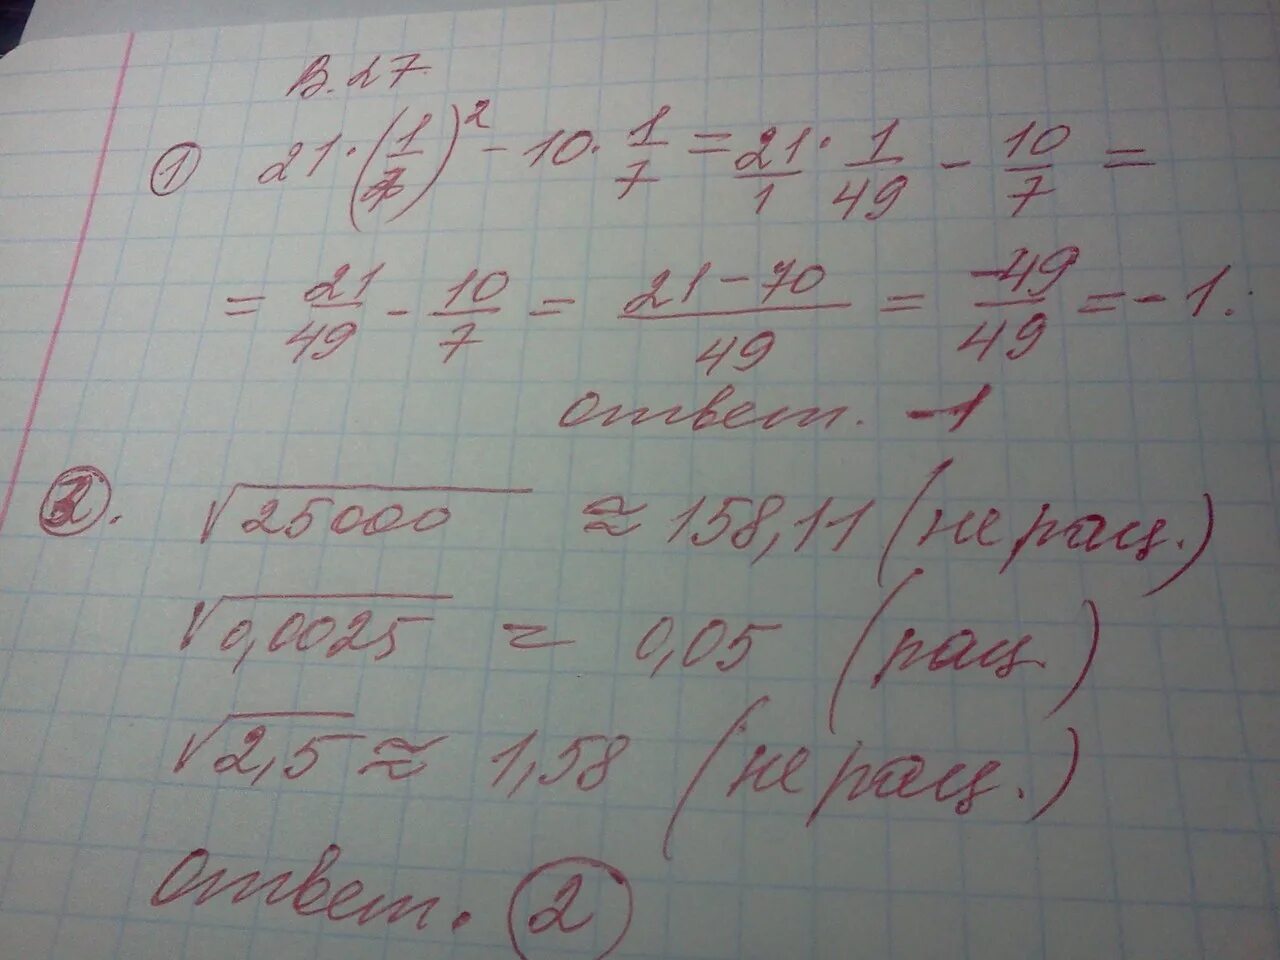 В. 27.
① 21 · (1/7)² - 10 · 1/7 = 21/1 · 1/49 - 10/7 =
= 21/49 - 10/7 = (21-70)/49 = -49/49 = -1.
ответ. -1
③. √25000 ≈ 158,11 (не рац.)
√0,0025 = 0,05 (рац.)
√2,5 ≈ 1,58 (не рац.)
ответ. ②